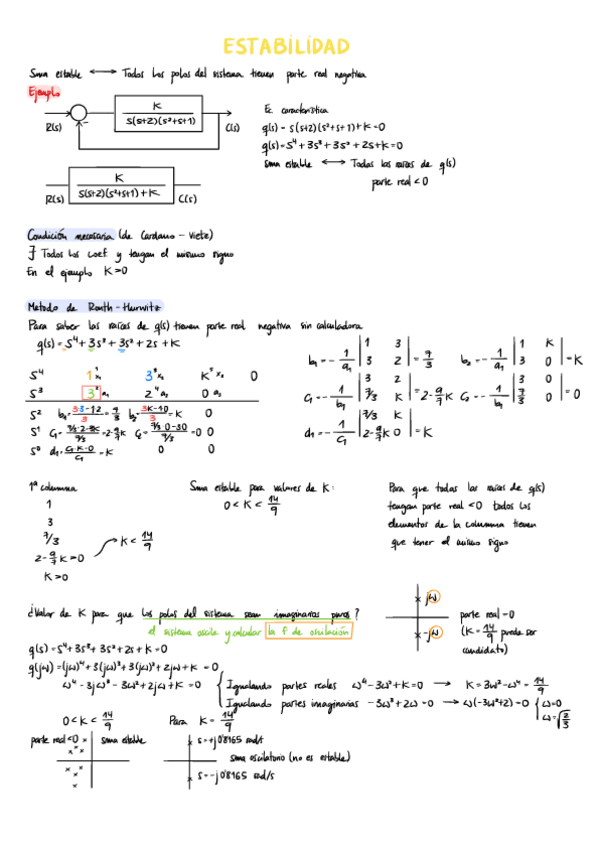 ESTABILIDAD
Sma estable ⟷ Todos los polos del sistema tienen parte real negativa
Ejemplo
R(s)
K
s(s+2)(s²+s+1)
C(s)
Ec. característica
q(s) = s(s+2)(s²+s+1)+K=0
q(s)=s⁴+3s³+3s²+2s+K=0
sma estable ⟷ Todas las raíces de q(s)
parte real < 0
K
s(s+2)(s²+s+1)+K
R(s)
C(s)
Condición necesaria (de Cardano - Viete)
∃ Todos los coef. y tengan el mismo signo
En el ejemplo K>0
Metodo de Routh-Hurwitz
Para saber las raíces de q(s) tienen parte real negativa sin calculadora
q(s) = s⁴+3s³+3s²+2s+K
S⁴ 1 3 K 0
S³ 3 a₁ 2 a₂ 0 a₃
S² b₁= 3·3-1·2/3 = 7/3 b₂= 3K-1·0/3 = K 0
S¹ C₁= 7/3·2-3K/7/3 = 2-9/7K C₂= 7/3·0-3·0/7/3 = 0 0
S⁰ d₁= C₁·K-0/C₁ = K 0 0
b₁=- 1/a₁ |1 3 3 2| = 7/3 b₂=- 1/a₁ |1 K 3 0| = K
C₁=- 1/b₁ |3 2 7/3 K| = 2-9/7K C₂=- 1/b₁ |3 0 7/3 0| = 0
d₁=- 1/C₁ |7/3 K 2-9/7K 0| = K
1ª columna
1
3
7/3
2-9/7K>0 K < 14/9
K>0
Sma estable para valores de K:
0 < K < 14/9
Para que todas las raíces de q(s)
tengan parte real <0 todos los
elementos de la columna tienen
que tener el mismo signo
¿Valor de K para que los polos del sistema sean imaginarios puros?
el sistema oscile y calcular la f de oscilación
jω
-jω
parte real=0
(K= 14/9 puede ser
candidato)
q(s)= s⁴+3s³+3s²+2s+K
q(jω)=(jω)⁴+3(jω)³+3(jω)²+2jω+K = 0
ω⁴-3jω³-3ω²+2jω+K = 0
Igualando partes reales ω⁴-3ω²+K=0 → K=3ω²-ω⁴ = 14/9
Igualando partes imaginarias -3ω³+2ω=0 → ω(-3ω²+2)=0 ω=0
ω=√2/3
0<K< 14/9
parte real<0
sma estable
Para K= 14/9
s=+j0'8165 rad/s
sma oscilatorio (no es estable)
s=-j0'8165 rad/s